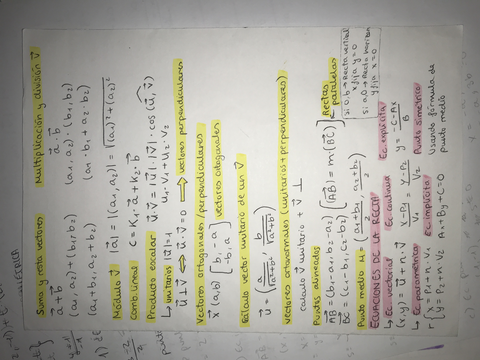 Suma y resta vectores
a⃗ + b⃗
(a₁, a₂) + (b₁, b₂)
(a₁ + b₁, a₂ + b₂)
Multiplicación y división v⃗.
a⃗ · b⃗
(a₁, a₂) · (b₁, b₂)
(a₁ · b₁ + a₂ · b₂)
Módulo v⃗. |a⃗| = |(a₁, a₂)| = √(a₁)² + (a₂)²
Comb. lineal c⃗ = K₁ · a⃗ + K₂ · b⃗
Producto escalar u⃗ · v⃗ = |u⃗| · |v⃗| · cos (u⃗, v⃗)
↳ unitarios |a⃗| = 1 u₁ · v₁ + u₂ · v₂
u⃗ ⊥ v⃗ ⟺ u⃗ · v⃗ = 0 ⟹ vectores perpendiculares
Vectores ortogonales/perpendiculares
x⃗ (a, b) [ b, -a ] vectores ortogonales
-b, a
Cálculo vector unitario de un v⃗
u⃗ = ( a/√a²+b² , b/√a²+b² )
vectores ortonormales (unitarios + perpendiculares)
calculo v⃗ unitario + v⃗ ⊥
Puntos alineados
AB⃗ = (b₁ - a₁, b₂ - a₂)
BC⃗ = (c₁ - b₁, c₂ - b₂)
[AB⃗ = m · (BC⃗)] Rectas paralelas
Punto medio M = ( a₁ + b₁ / 2 , a₂ + b₂ / 2 )
ECUACIONES DE LA RECTA
↳ Ec vectorial
(x, y) = u⃗ + n · v⃗
↳ Ec parametrica
r { x = P₁ + n · v₁
y = P₂ + n · v₂
Ec. continua
x - P₁ / V₁ = y - P₂ / V₂
Ec. implícita
Ax + By + C = 0
Ec. explícita
y = -C - Ax / B
Punto simétrico
Usando fórmula de
punto medio